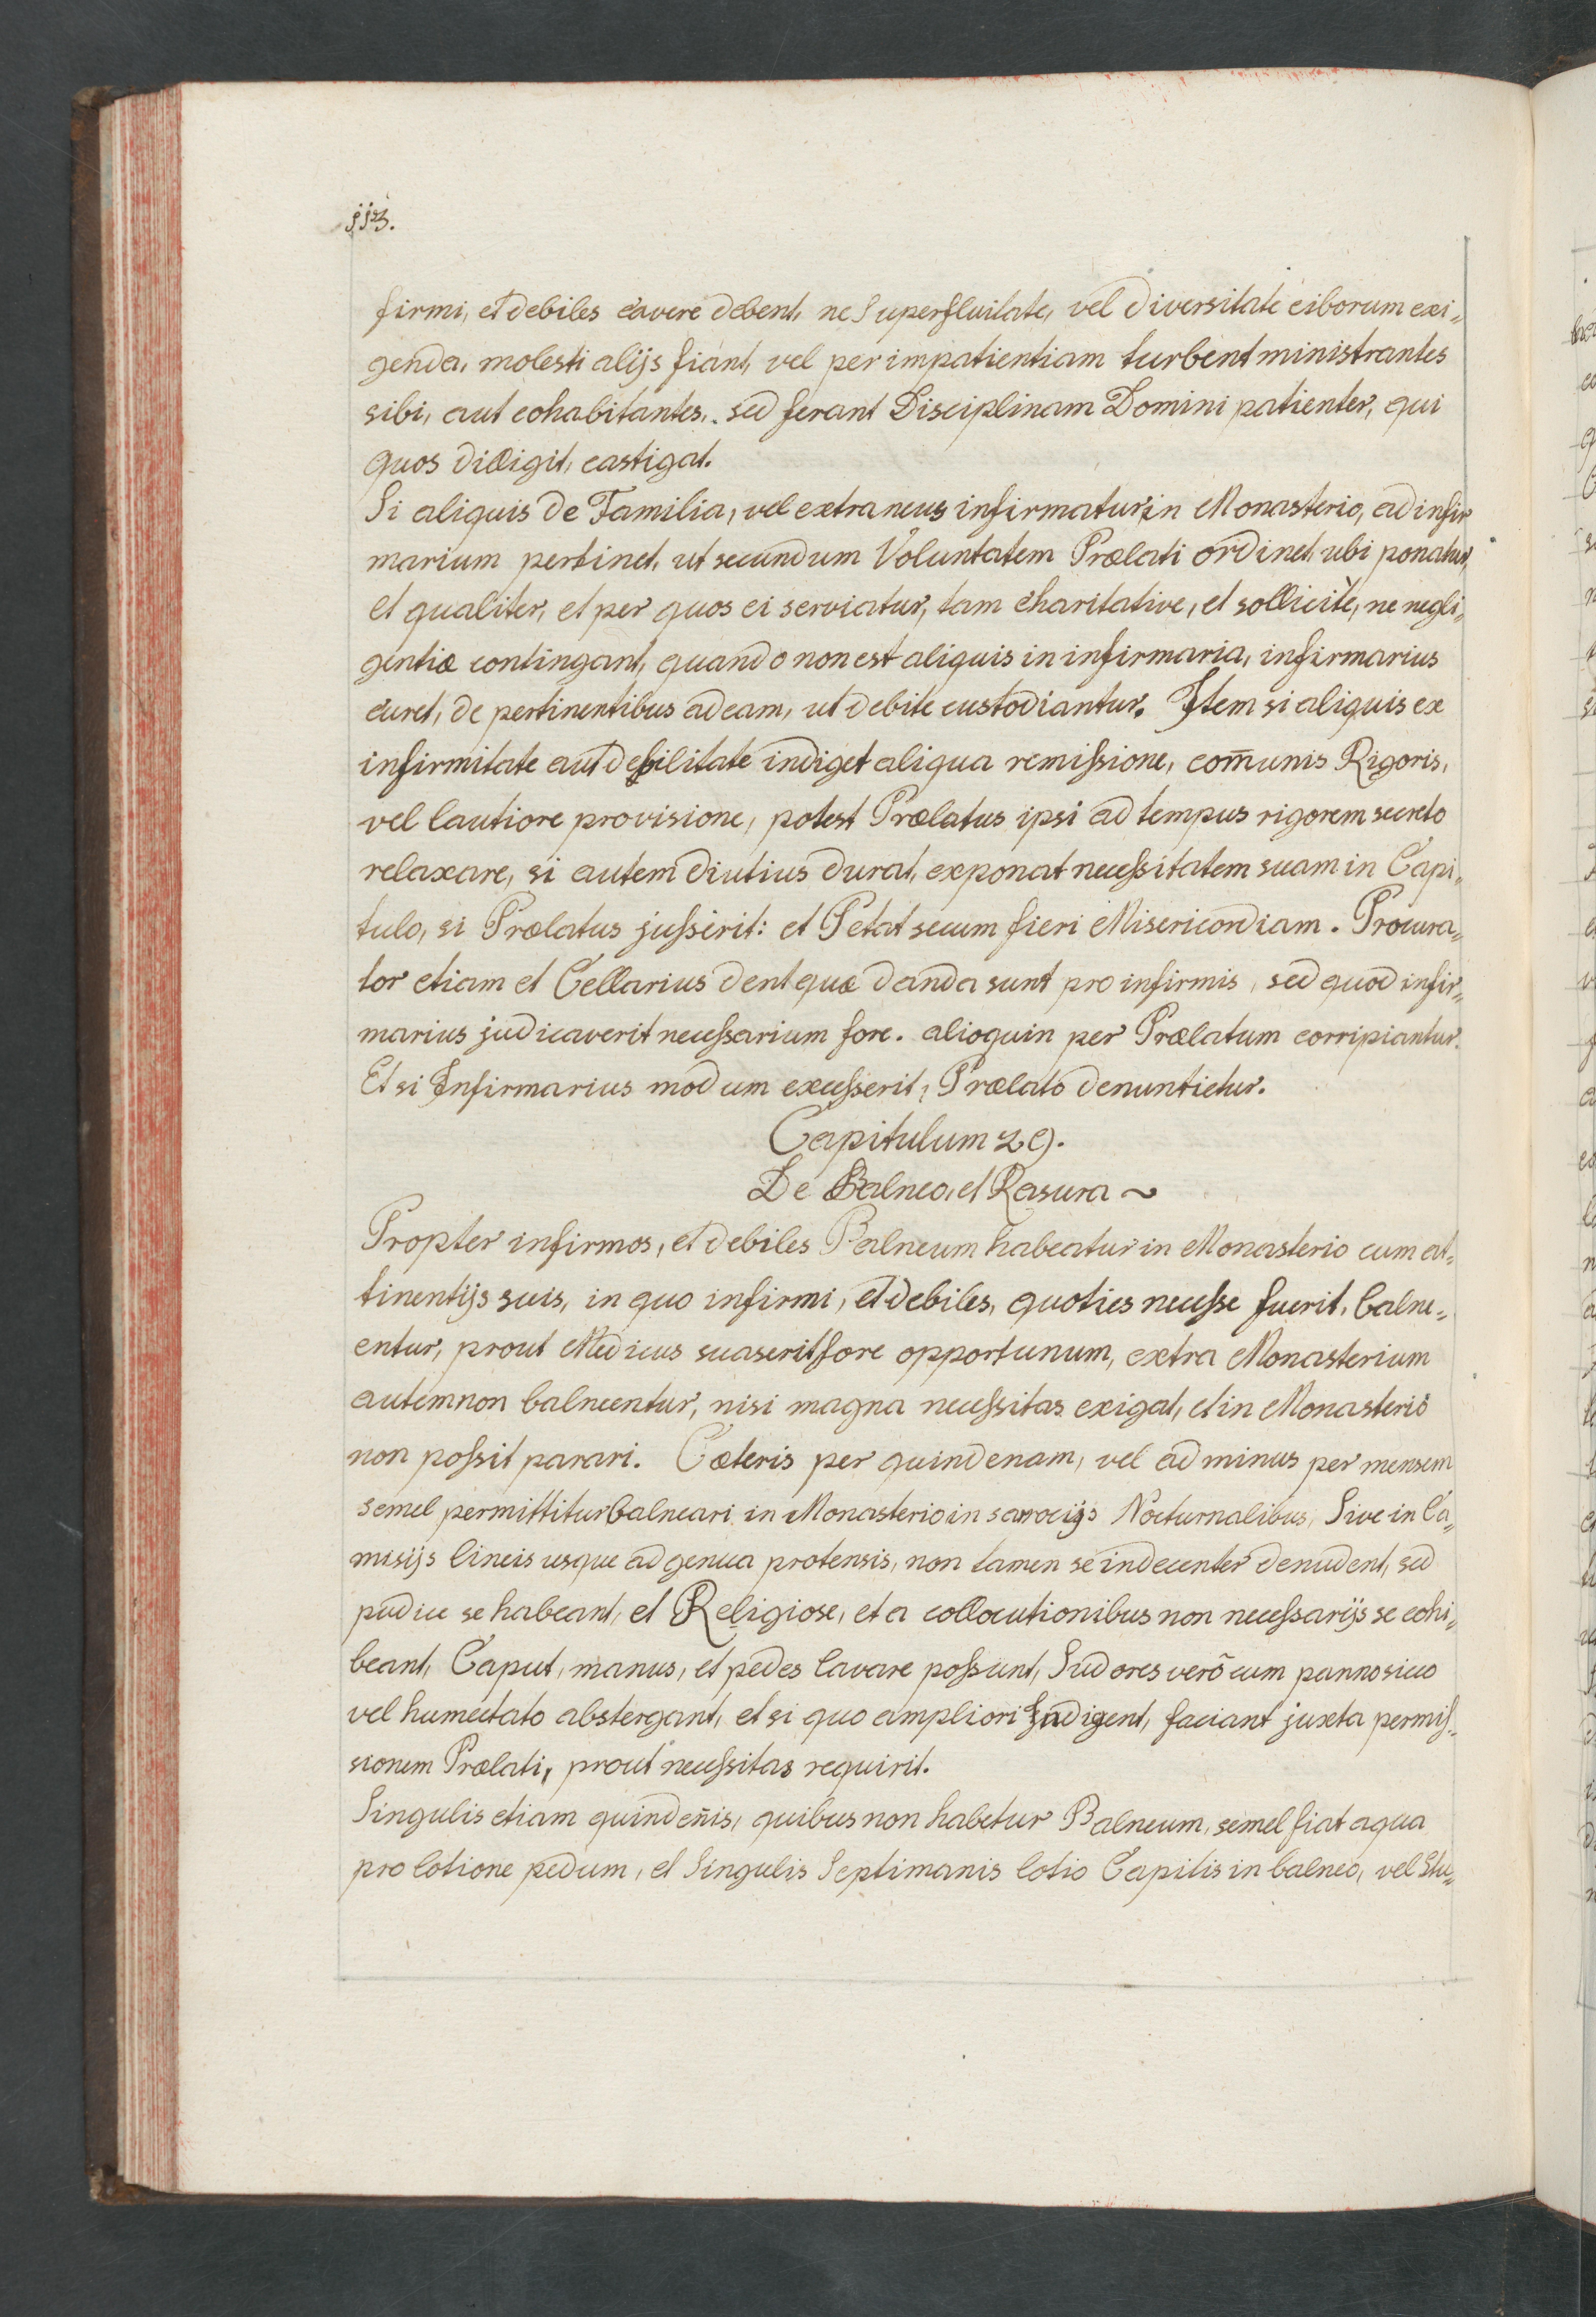 113.
firmi, et debiles cavere debent, ne Superfluitate, vel diversitate ciborum exi„
genda, molesti alijs fiant, vel per impatientiam turbent ministrantes
sibi, aut cohabitantes, sed ferant Disciplinam Domini patienter, qui
quos diligit, castigat.
Si aliquis de Familia, vel extraneus infirmatur in Monasterio, ad infir
marium pertinet, ut secundum Voluntatem Prælati ordinet ubi ponatur,
et qualiter, et per quos ei serviatur, tam charitative, et sollicitè, ne negli„
gentiæ contingant, quando non est aliquis in infirmaria, infirmarius
curet, de pertinentibus ad eam, ut debite custodiantur. Item si aliquis ex
infirmitate aut debilitate indiget aliqua remiſsione, com̄unis Rigoris,
vel lautiore provisione, potest Prælatus ipsi ad tempus rigorem secreto
relaxare, si autem diutius durat, exponat neceſsitatem suam in Capi„
tulo, si Prælatus juſserit: et Petat secum fieri Misericordiam. Procura„
tor etiam et Cellarius dent quæ danda sunt pro infirmis, sed quod infir„
marius judicaverit neceſsarium fore. alioquin per Prælatum corripiantur.
Et si Infirmarius modum exceſserit, Prælato denuntietur.
Capitulum 29.
De Balneo, et Rasura ~
Propter infirmos, et debiles Balneum habeatur in Monasterio cum at„
tinentijs suis, in quo infirmi, et debiles, quoties neceſse fuerit, balne„
entur, prout Medicus suaserit fore opportunum, extra Monasterium
autem non balneentur, nisi magna neceſsitas exigat, et in Monasterio
non poſsit parari. Cæteris per quindenam, vel ad minus per mensem
semel permittitur balneari in Monasterio in sarrocijs Nocturnalibus, Sive in Ca„
misijs lineis usque ad genua protensis, non tamen se indecenter denudent, sed
pudice se habeant, et Religiose, et a collocutionibus non neceſsarijs se cohi„
beant, Caput, manus, et pedes lavare poſsunt, Sudores verõ cum panno sicco
vel humectato abstergant, et si quo ampliori Indigent, faciant juxta permiſ„
sionem Prælati, prout neceſsitas requirit.
Singulis etiam quinden̄is, quibus non habetur Balneum, semel fiat aqua
pro lotione pedum, et Singulis Septimanis lotio Capitis in balneo, vel Stu„